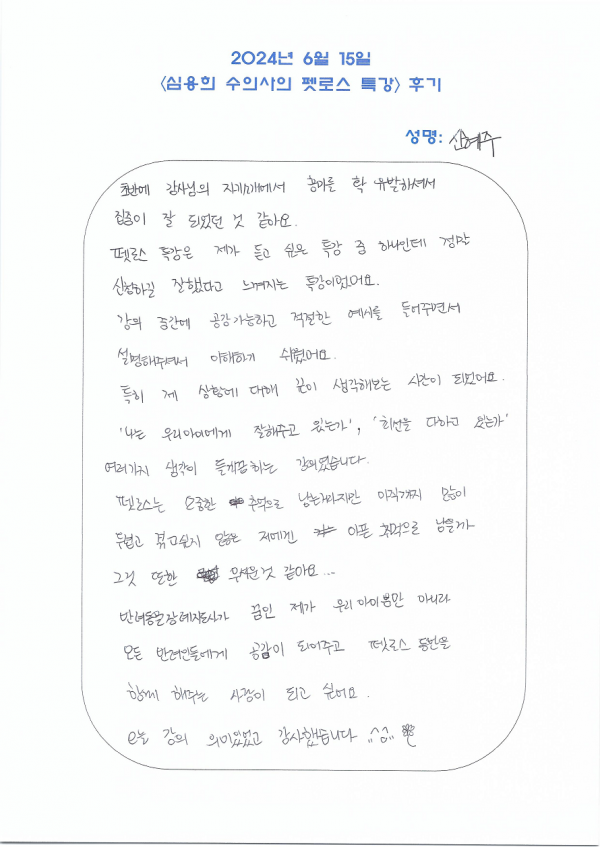 2024년 6월 15일
<심용희 수의사의 펫로스 특강> 후기
성명: 신예주
초반에 강사님의 자기소개에서 흥미를 확 유발하셔서
집중이 잘 되었던 것 같아요.
펫로스 특강은 제가 듣고 싶은 특강 중 하나인데 정말
신청하길 잘했다고 느껴지는 특강이었어요.
강의 중간에 공감가능하고 적절한 예시를 들어주면서
설명해주셔서 이해하기 쉬웠어요.
특히 제 상황에 대해 깊이 생각해보는 시간이 되었어요.
'나는 우리아이에게 잘해주고 있는가', '최선을 다하고 있는가'
여러가지 생각이 들게끔하는 강의였습니다.
펫로스는 소중한 추억으로 남는다지만 아직까지 많이
두렵고 겪고싶지 않은 저에겐 아픈 추억으로 남을까
그것 또한 무서운것 같아요...
반려동물장례지도사가 꿈인 제가 우리아이뿐만 아니라
모든 반려인들에게 공감이 되어주고 펫로스 동반을
함께 해주는 사람이 되고 싶어요.
오늘 강의 의미있었고 감사했습니다 ^^